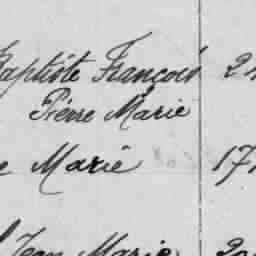 Baptiste François 2
Pierre Marie
e Marie 17
Jean Marie 20